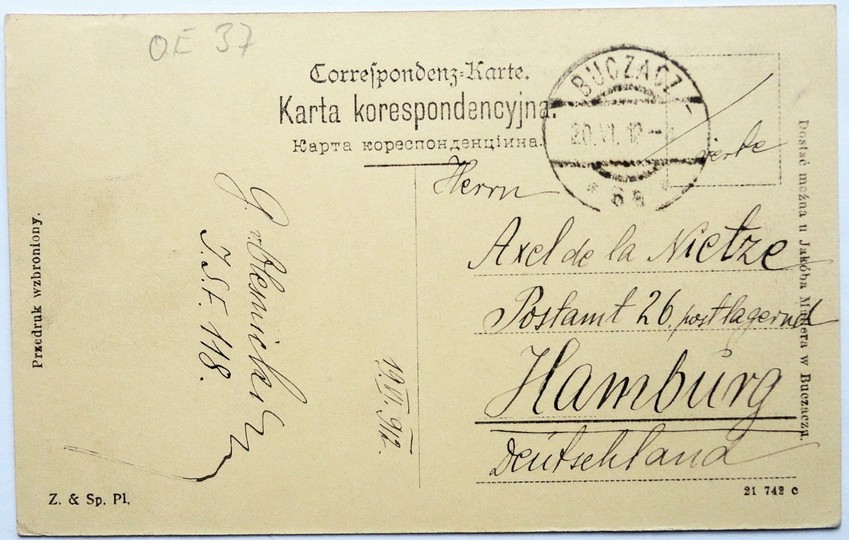 OE 37
Correspondenz-Karte.
Karta korespondencyjna.
Карта кореспонденційна.
BUCZACZ
20.VI.12
* 6a *
verte
Herrn
Axel de la Nietze
Postamt 26. postlagernd
Hamburg
Deutschland
I.S.F. 118.
19.VI.912.
Przedruk wzbroniony.
Dostać można u Jakóba M
era w Buczaczu.
Z. & Sp. Pl.
21 742 c